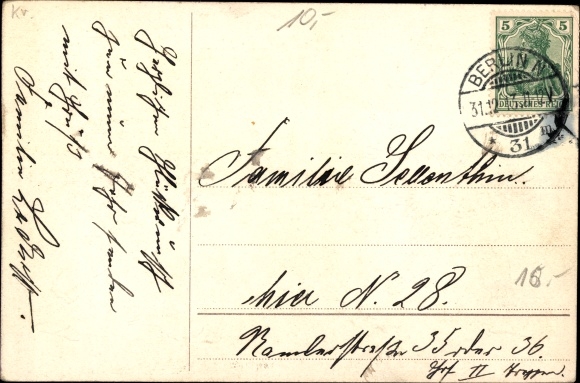 Herzlichen Glückwunsch
zum neuen Jahr senden
mit Gruß
Familie
10,-
5 5
DEUTSCHES REICH
BERLIN N
31.12
31
Familie Sellenthin.
hier N. 28.
Ramlerstraße 35 oder 36.
Hof II Treppen.